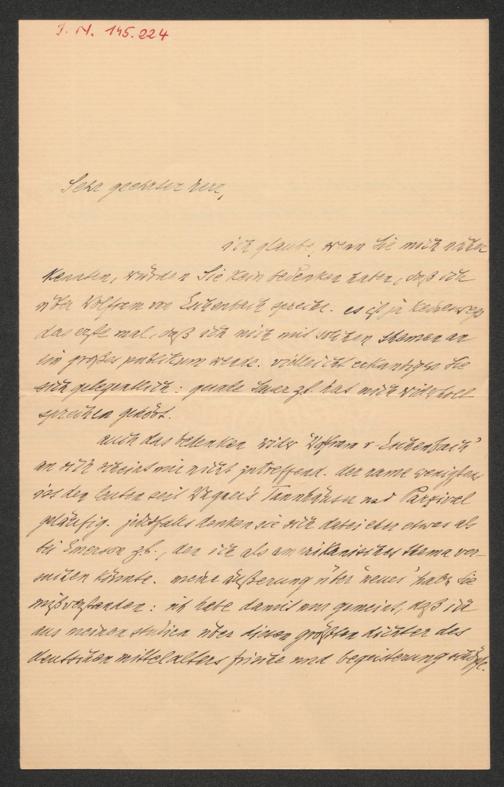 I. N. 145.224
Sehr geehrter herr,
ich glaube, wenn Sie mich näher
kennten, würden Sie kein bedenken haben, daß ich
über Wolfram von Eschenbach spreche. es ist ja keineswegs
das erste mal, daß ich mich mit solchen themen an
ein großes publikum wende. vielleicht erkundigen Sie
sich gelegentlich: gerade hat mich wiederholt
sprechen gehört.
auch das bedenken wider "Wolfram v Eschenbach"
an sich scheint mir nicht zutreffend. der name wenigstens
ist den leuten seit Wagners Tannhäuser und Parsival
geläufig. jedesfalls denken sie sich dabei eher etwas als
bei Emerson zb., den ich als amerikanisches thema vor-
schützen könnte. meine äußerung über 'neues' habe Sie
mißverstanden: ich habe damit nur gemeint, daß ich
aus meinen studien über diesen größten dichter des
deutschen mittelalters frische und begeisterung